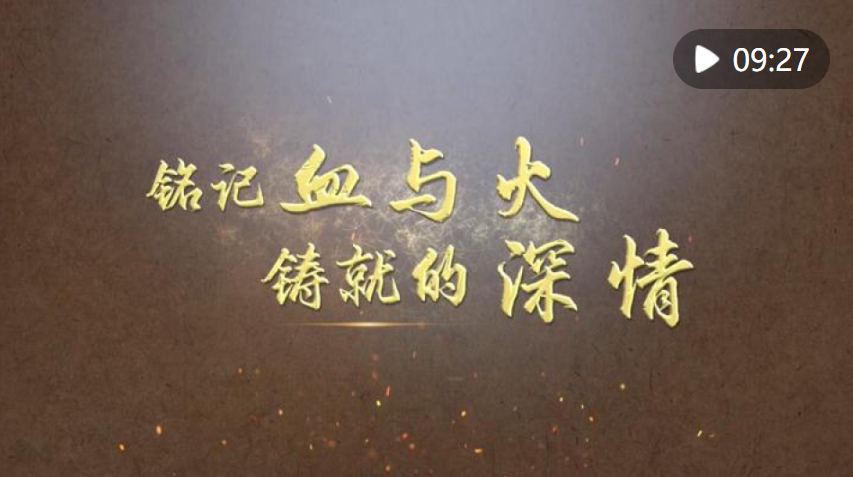 09:27
铭记血与火
铸就的深情